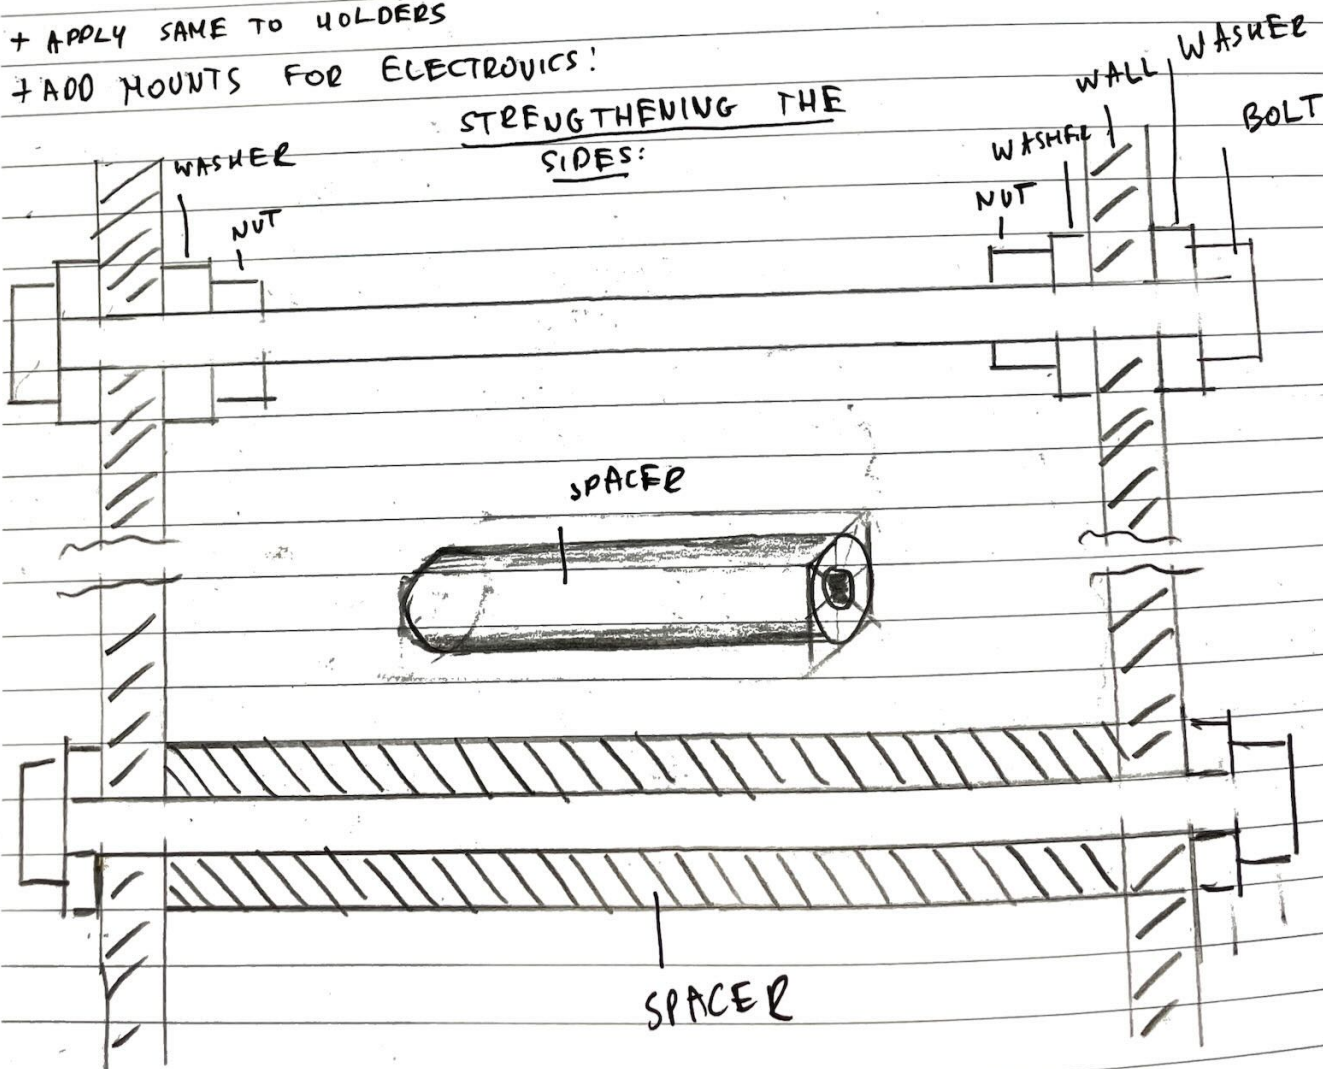 + APPLY SAME TO HOLDERS
+ ADD MOUNTS FOR ELECTRONICS!
STRENGTHENING THE
SIDES:
WASHER
NUT
NUT
WASHER
WALL
WASHER
BOLT
SPACER
SPACER